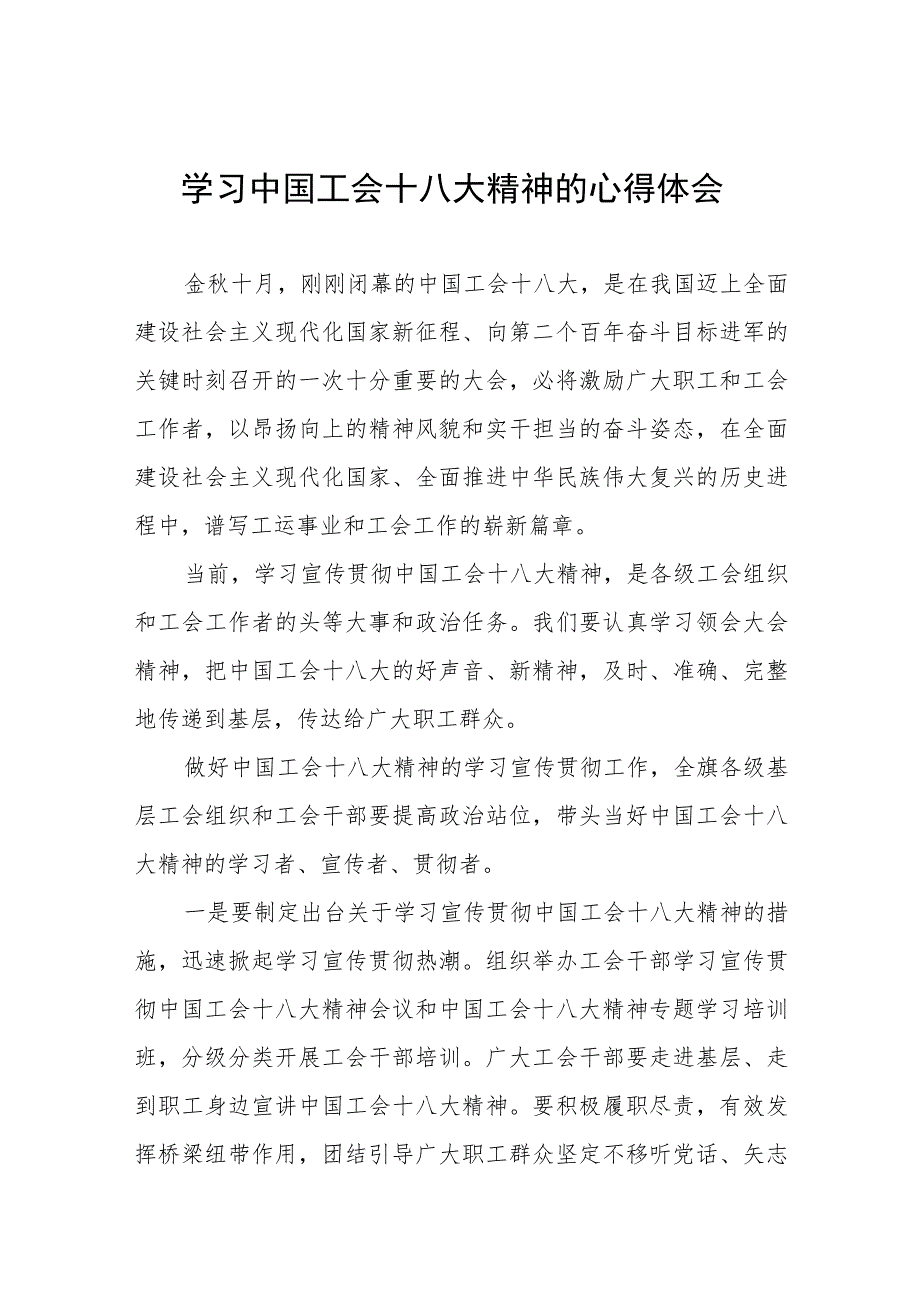 学习中国工会十八大精神的心得体会
金秋十月，刚刚闭幕的中国工会十八大，是在我国迈上全面
建设社会主义现代化国家新征程、向第二个百年奋斗目标进军的
关键时刻召开的一次十分重要的大会，必将激励广大职工和工会
工作者，以昂扬向上的精神风貌和实干担当的奋斗姿态，在全面
建设社会主义现代化国家、全面推进中华民族伟大复兴的历史进
程中，谱写工运事业和工会工作的崭新篇章。
当前，学习宣传贯彻中国工会十八大精神，是各级工会组织
和工会工作者的头等大事和政治任务。我们要认真学习领会大会
精神，把中国工会十八大的好声音、新精神，及时、准确、完整
地传递到基层，传达给广大职工群众。
做好中国工会十八大精神的学习宣传贯彻工作，全旗各级基
层工会组织和工会干部要提高政治站位，带头当好中国工会十八
大精神的学习者、宣传者、贯彻者。
一是要制定出台关于学习宣传贯彻中国工会十八大精神的措
施，迅速掀起学习宣传贯彻热潮。组织举办工会干部学习宣传贯
彻中国工会十八大精神会议和中国工会十八大精神专题学习培训
班，分级分类开展工会干部培训。广大工会干部要走进基层、走
到职工身边宣讲中国工会十八大精神。要积极履职尽责，有效发
挥桥梁纽带作用，团结引导广大职工群众坚定不移听党话、矢志